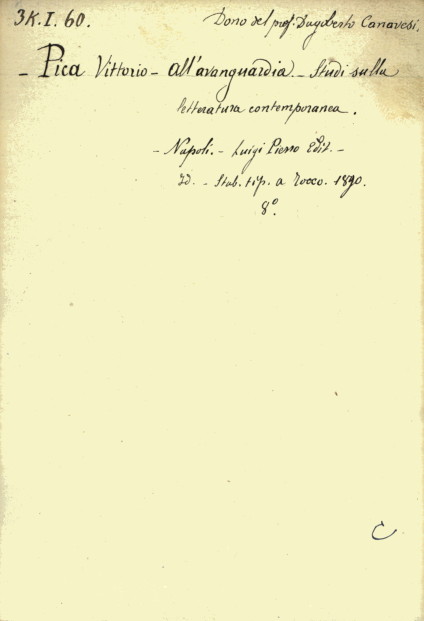 3K.I.60.
Dono del prof. Dagoberto Canavesi.
- Pica Vittorio - All'avanguardia - Studi sulla
letteratura contemporanea.
- Napoli. - Luigi Pierro Edit. -
Id. - Stab. tip. a Rocco. 1890.
8°
C